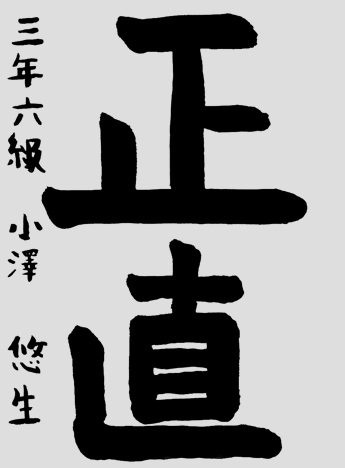 正直
三年六級 小澤 悠生